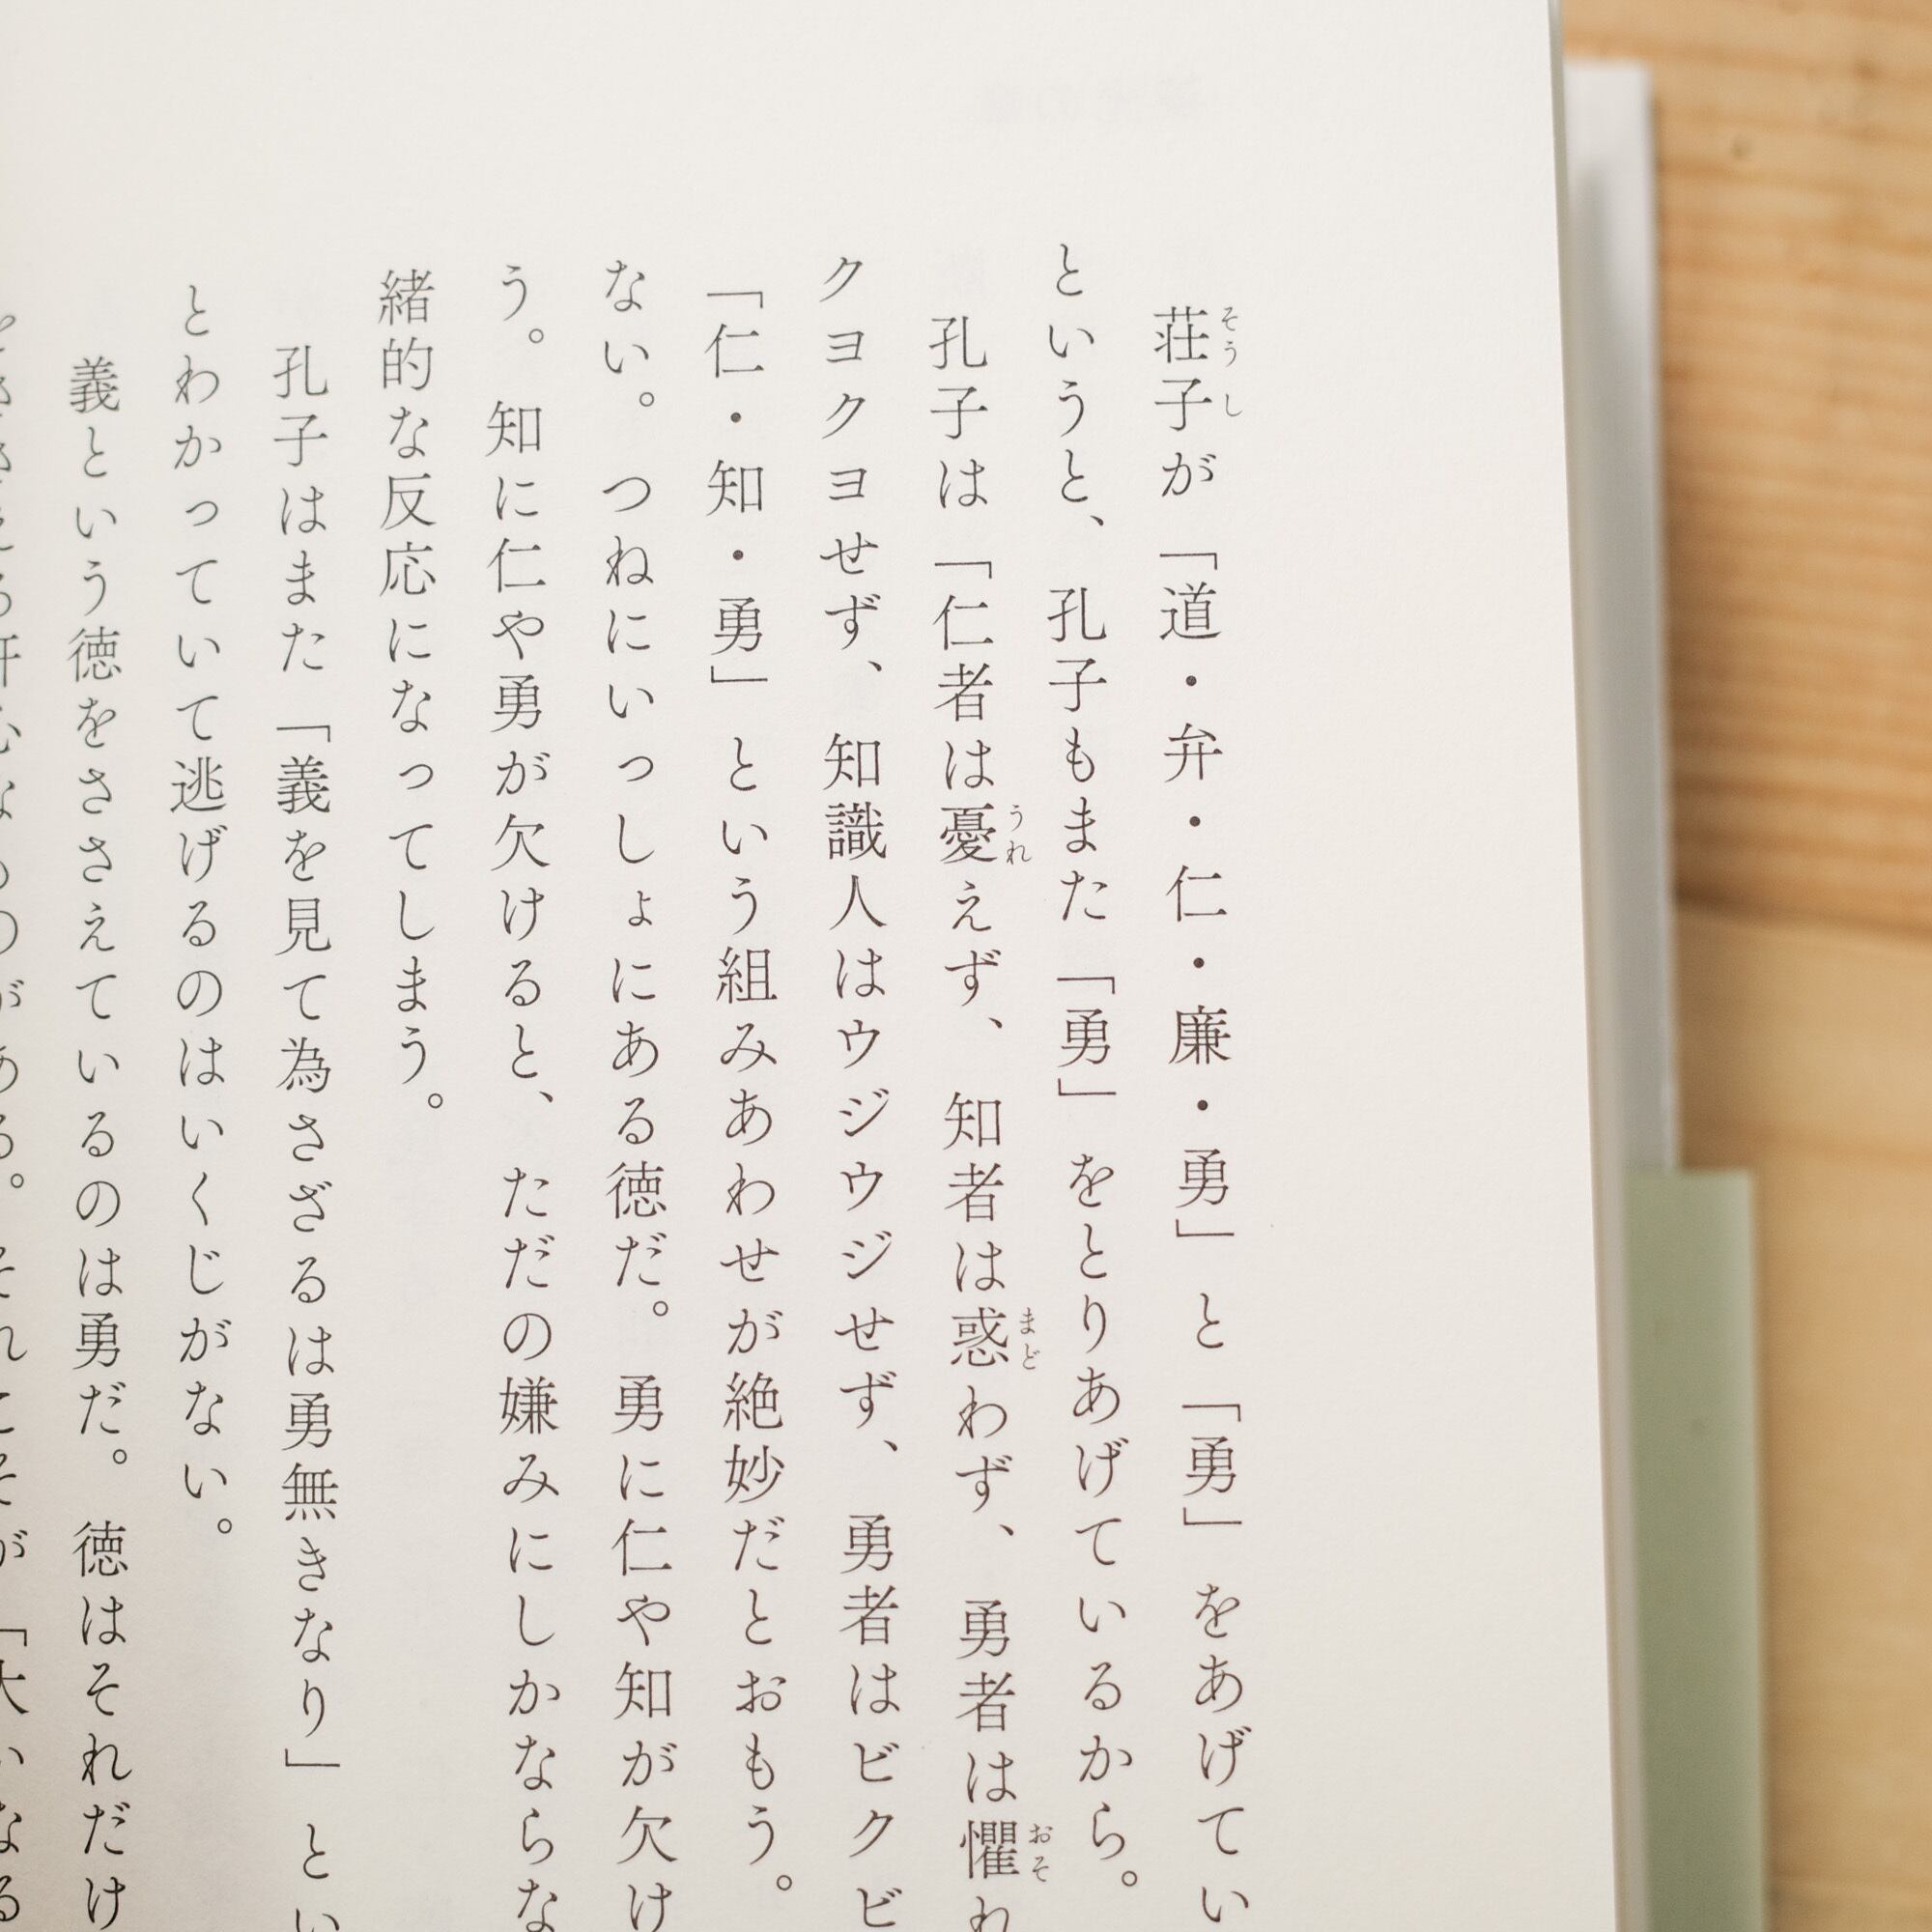 荘子が「道・弁・仁・廉・勇」と「勇」をあげてい
というと、孔子もまた「勇」をとりあげているから。
孔子は「仁者は憂えず、知者は惑わず、勇者は懼れ
クヨクヨせず、知識人はウジウジせず、勇者はビクビ
「仁・知・勇」という組みあわせが絶妙だとおもう。
ない。つねにいっしょにある徳だ。勇に仁や知が欠け
う。知に仁や勇が欠けると、ただの嫌みにしかならな
緒的な反応になってしまう。
孔子はまた「義を見て為さざるは勇無きなり」とい
とわかっていて逃げるのはいくじがない。
義という徳をささえているのは勇だ。徳はそれだけ